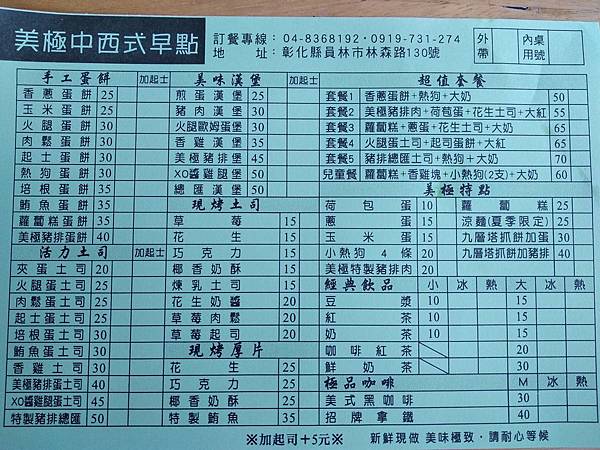 美極中西式早點
訂餐專線：04-8368192・0919-731-274
地　址：彰化縣員林市林森路130號
外帶
內桌用號
手工蛋餅 加起士
香蔥蛋餅 25
玉米蛋餅 30
火腿蛋餅 30
肉鬆蛋餅 30
起士蛋餅 30
熱狗蛋餅 30
培根蛋餅 35
鮪魚蛋餅 35
蘿蔔糕蛋餅 35
美極豬排蛋餅 40
活力土司 加起士
夾蛋土司 20
火腿蛋土司 25
肉鬆蛋土司 25
起士蛋土司 25
培根蛋土司 30
鮪魚蛋土司 30
香雞土司 30
美極豬排蛋土司 40
XO醬雞腿蛋土司 45
特製豬排總匯 50
美味漢堡 加起士
煎蛋漢堡 25
豬肉漢堡 30
火腿歐姆蛋堡 30
香雞漢堡 35
美極豬排堡 45
XO醬雞腿堡 50
總匯漢堡 50
現烤土司
草莓 15
花生 15
巧克力 15
椰香奶酥 15
煉乳土司 15
花生奶醬 20
草莓肉鬆 20
草莓起司 20
現烤厚片
花生 25
巧克力 25
椰香奶酥 25
特製鮪魚 35
超值套餐
套餐1 香蔥蛋餅+熱狗+大奶 50
套餐2 美極豬排肉+荷包蛋+花生土司+大紅 55
套餐3 蘿蔔糕+蔥蛋+花生土司+大奶 65
套餐4 火腿蛋土司+起司蛋餅+大紅 65
套餐5 豬排總匯土司+熱狗+大奶 70
兒童餐 蘿蔔糕+香雞塊+小熱狗(2支)+大奶 60
美極特點
荷包蛋 10 蘿蔔糕 25
蔥蛋 15 涼麵(夏季限定) 25
玉米蛋 15 九層塔抓餅加蛋 30
小熱狗4條 20 九層塔抓餅加豬排 40
美極特製豬排肉 20
經典飲品 小 冰 熱 大 冰 熱
豆漿 10 15
紅茶 10 15
奶茶 10 15
咖啡紅茶 20
鮮奶茶 30
極品咖啡 M 冰 熱
美式黑咖啡 30
招牌拿鐵 40
※加起司+5元※
新鮮現做 美味極致・請耐心等候